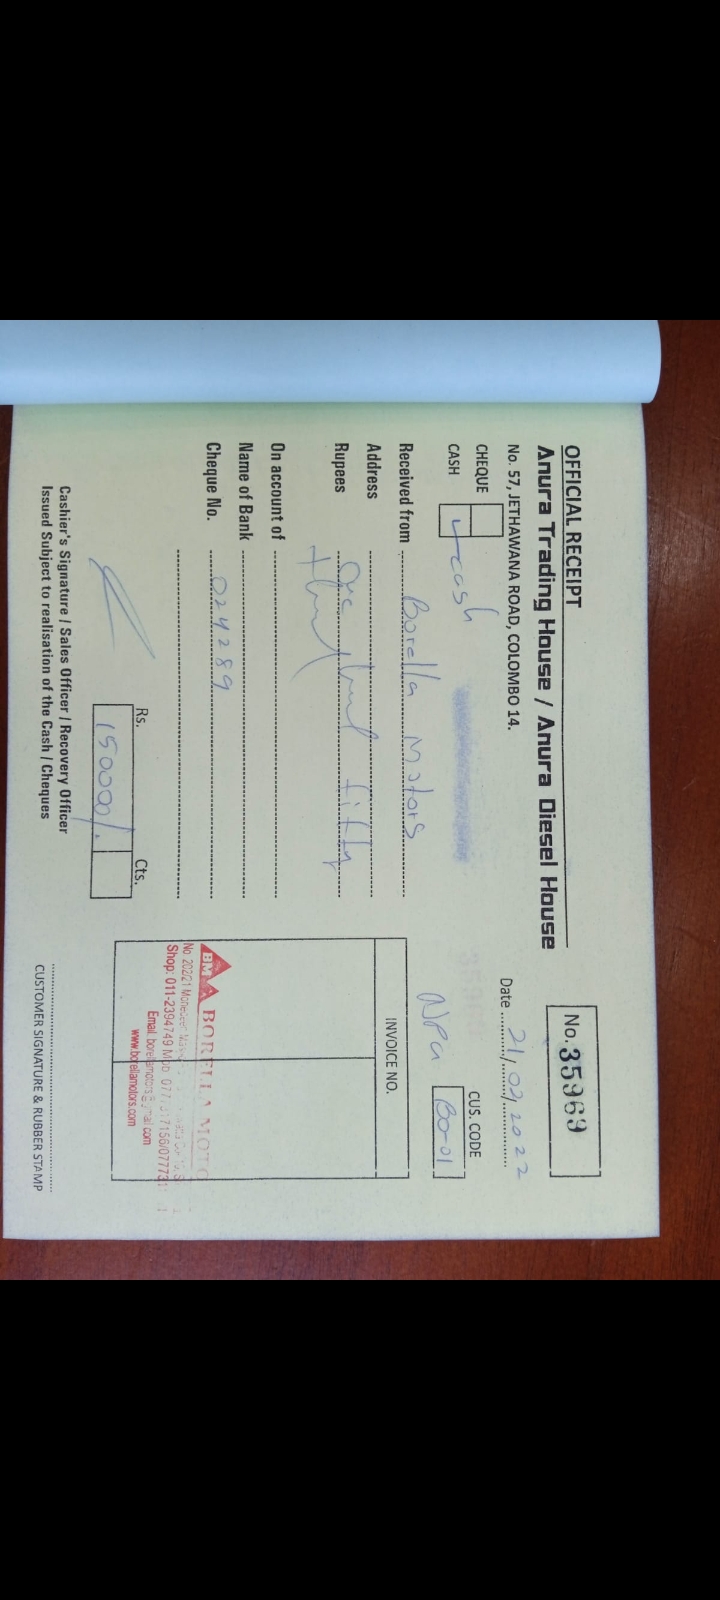 OFFICIAL RECEIPT
Anura Trading House / Anura Diesel House
No. 57, JETHAWANA ROAD, COLOMBO 14.
No. 35969
Date 21/02/2022
CHEQUE
CASH cash
CUS. CODE
NPa Bo-01
Received from Borella Motors
Address
Rupees One fifty
On account of
Name of Bank
Cheque No. 024289
INVOICE NO.
Rs. Cts.
150000/.
BM BORELLA MOTO
No 202/21
Shop: 011-2394749 Mob 077
Email: borellamotors@gmail.com
www.borellamotors.com
Cashier's Signature / Sales Officer / Recovery Officer
Issued Subject to realisation of the Cash / Cheques
CUSTOMER SIGNATURE & RUBBER STAMP